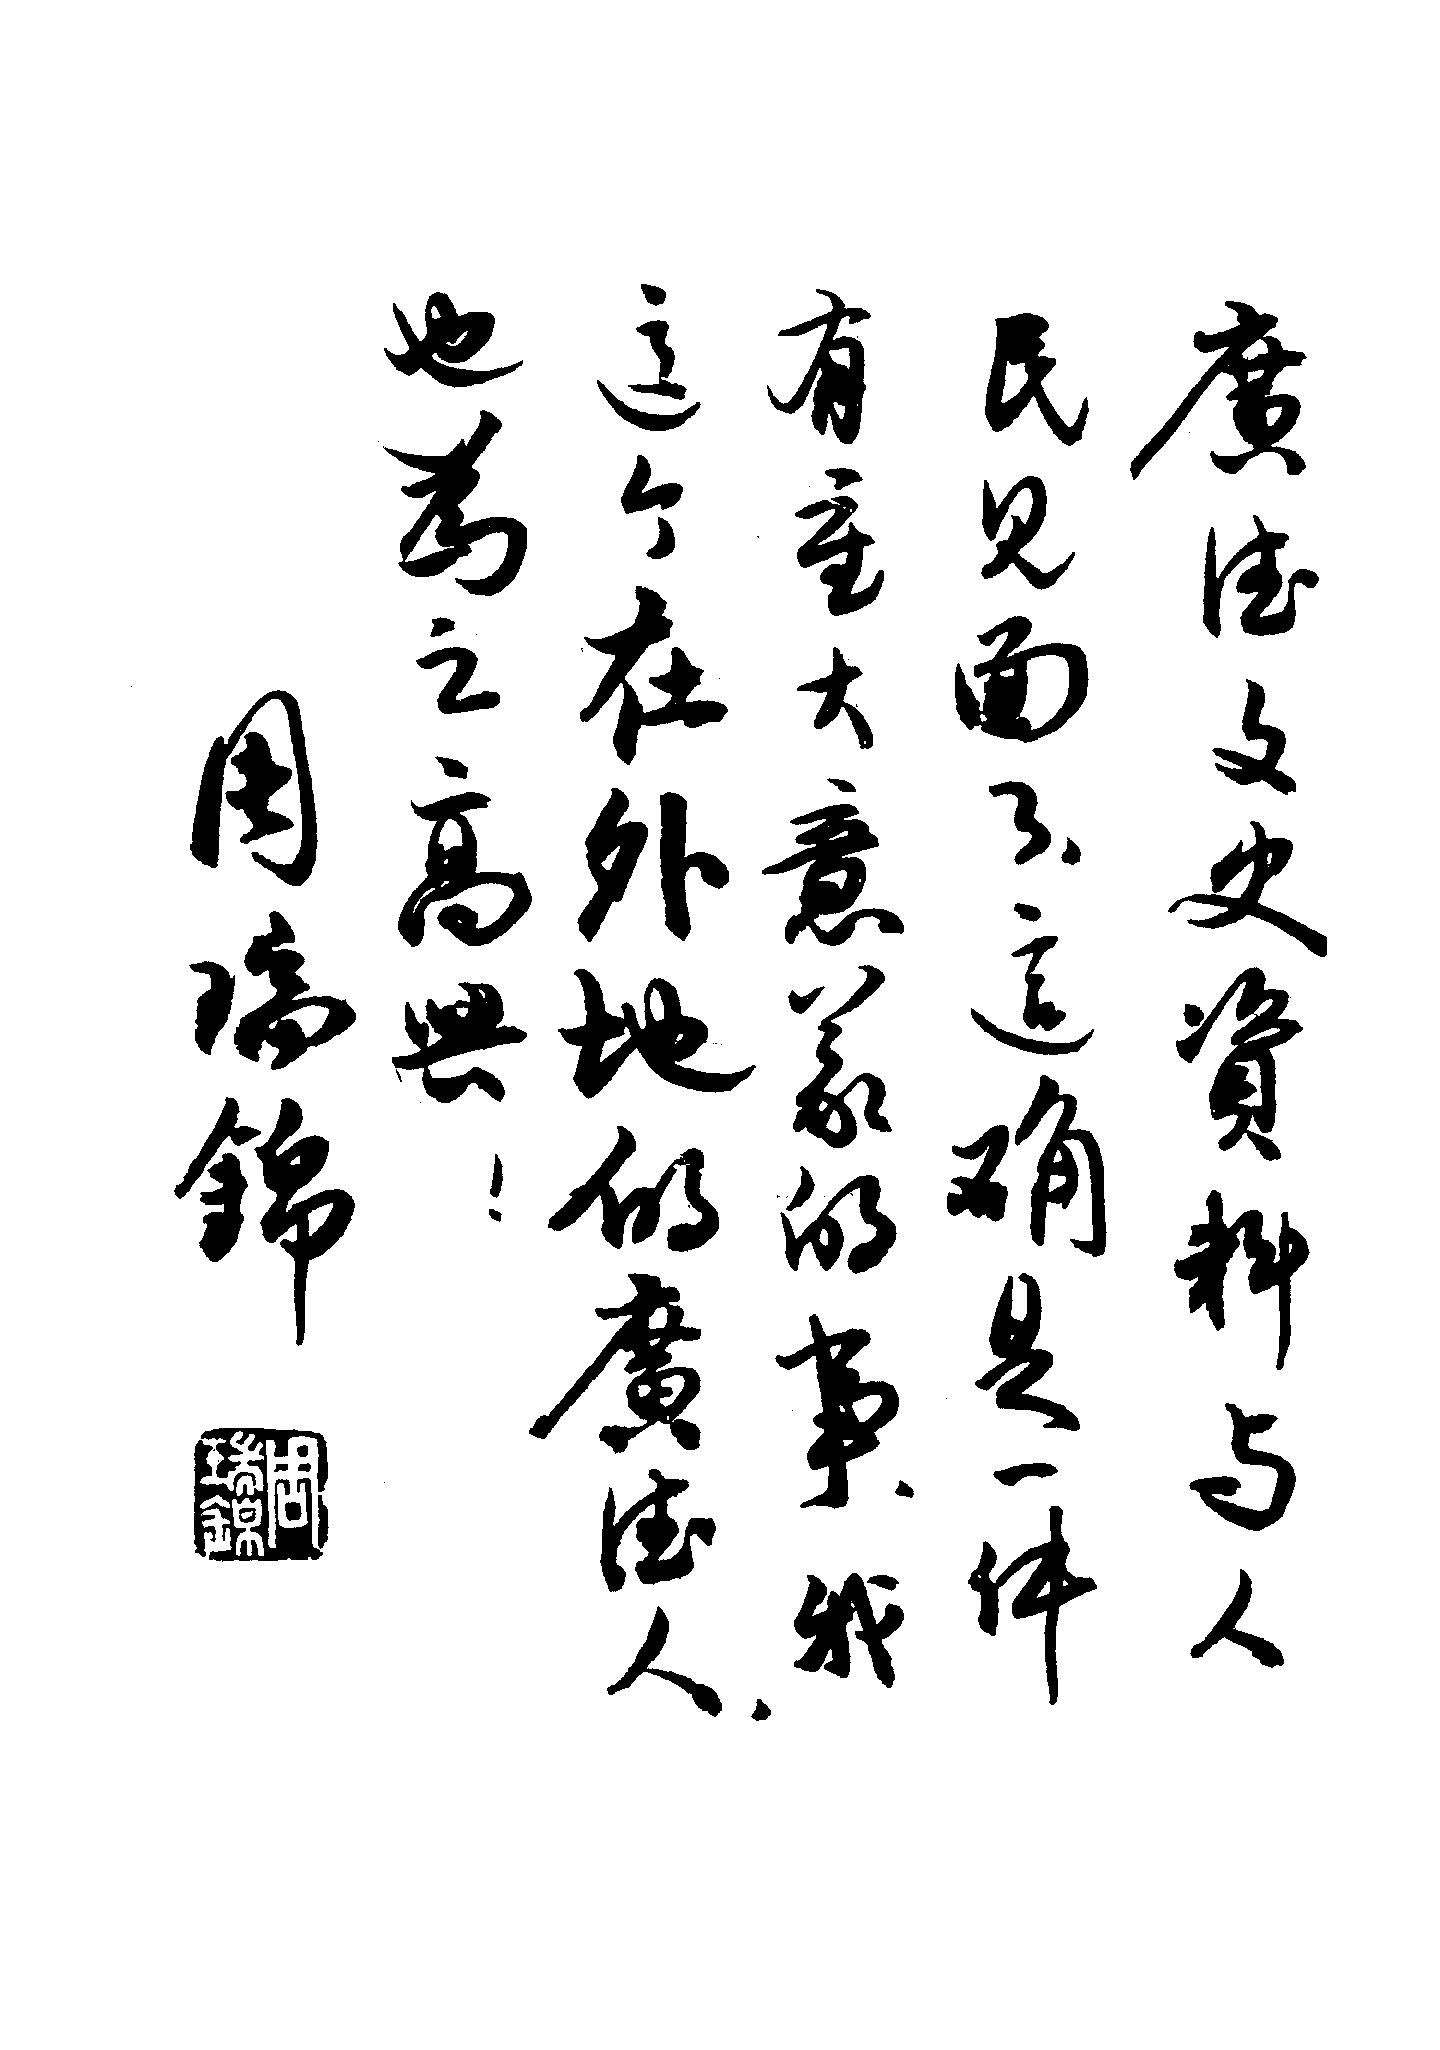 廣德文史資料与人
民見面了、這确是一件
有重大意義的事、我
這个在外地的廣德人、
也為之高興！
周瑞錦
周瑞錦